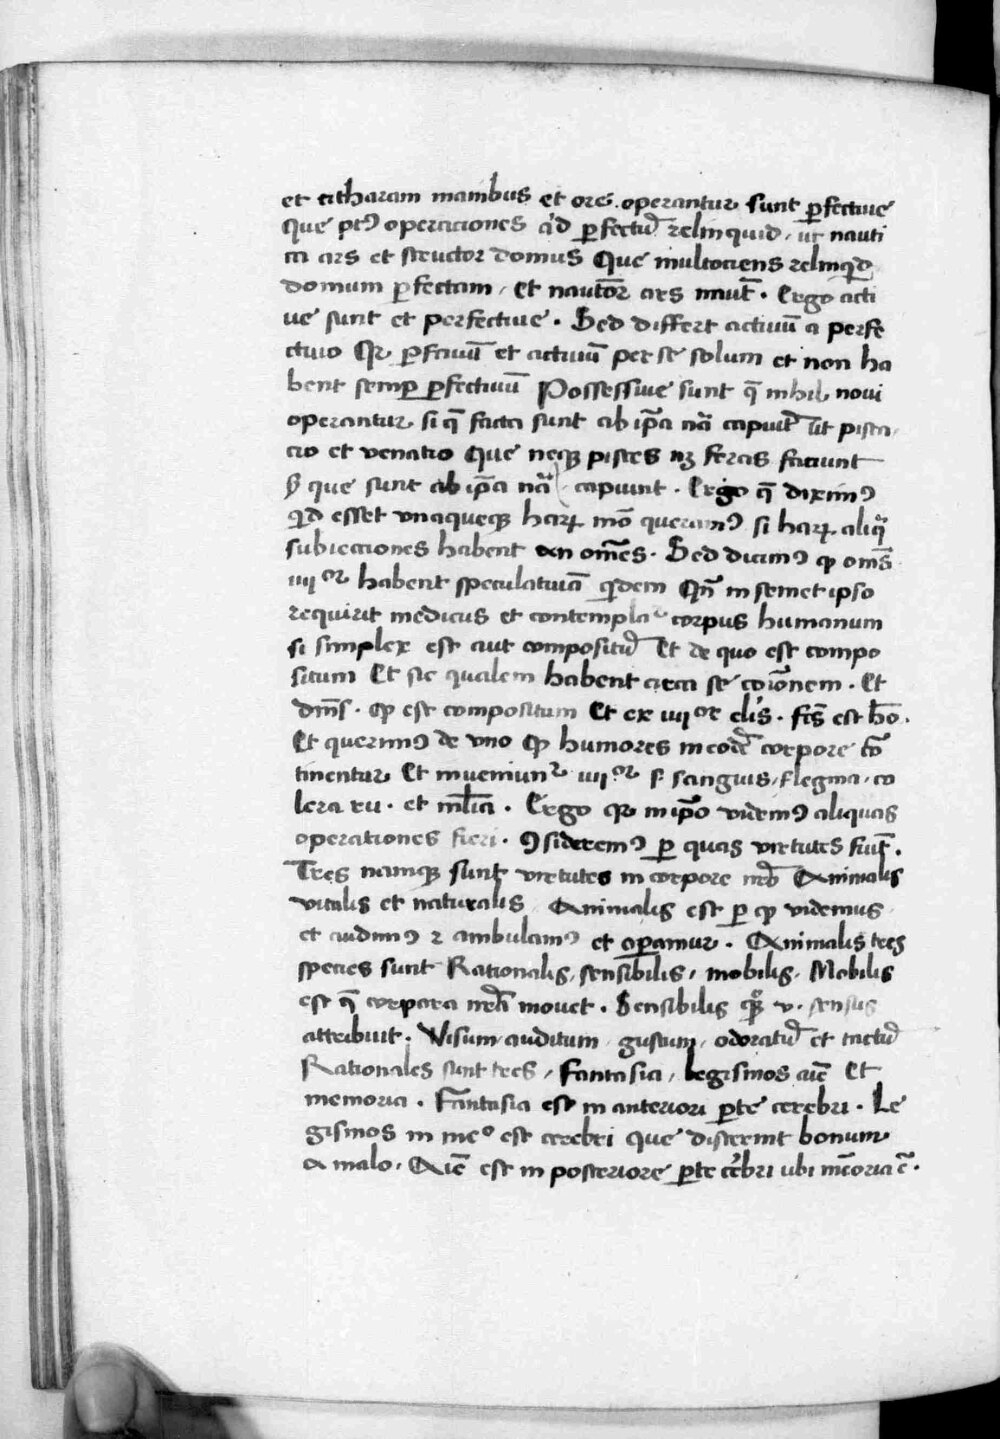 et citharam manibus et ore. operantur sunt ꝑfectiue
Que pꝰ operaciones aͥd ꝑfectū relinquid, ut nauti
ca ars et structor domus Que multociens relinqͥd
domum ꝑfectam, et nautōꝝ ars nauē. Ergo acti
ue sunt et perfectiue. Sed differt actiuū a perfe
ctiuo Qꝛ ꝑfciuū et actiuū per se solum et non ha
bent semꝑ ꝑfectiuū Possessiue sunt q̄ nihil noui
operantur si q̄ facta sunt ab ip̄a nā capiūt ut pisca
cio et venatio Que neqꝫ pisces nꝫ feras faciunt
ꝫ que sunt ab ip̄a nā capiunt. Ergo q̄ diximꝰ
qd esset vnaqueqꝫ haꝝ mō queramꝰ si haꝝ aliq̄
subiectiones habent an om̄es. Sed dicimꝰ ꝙ om̄s
iiijor habent speculatiuā qͥdem Qn̄ in semet ipso
requirit medicus et contemplaͬ corpus humanum
si simplex est aut compositū Et de quo est compo
situm Et sic qualem habent circa se coıōnem. Et
dm̄s. ꝙ est compositum Et ex iiijor elīs. fc̄s est hō.
Et querimꝰ de vno ꝙ humores in eodē corpore cō
tinentur Et inueniunͬ iiijor s. sanguis, flegma, co
lera ru. et ml̄ia. Ergo qꝛ in ip̄o videmꝰ aliquas
operationes fieri. ꝯsideremꝰ ꝑ quas virtutes fiūt.
Tres namqꝫ sunt virtutes in corpore nr̄o Animalis
vitalis et naturalis. Animalis est ꝑ ꝙ videmus
et audimꝰ ⁊ ambulamꝰ et oꝑamur. Animalis tres
species sunt Rationalis, sensibilis, mobilis. Mobilis
est q̄ corpora nr̄a mouet. Sensibilis v. sensus
attribuit. Visum, auditum, gustum, odoratū et tactū
Rationales sunt tres, fantasia, legismos aīē Et
memoria. Fantasia est in anteriori ꝑte cerebri. Le
gismos in meo est cerebri que discernit bonum
a malo, Aīē est in posteriore ꝑte cēbri ubi mēoria ē.